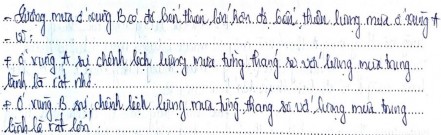 - Lượng mưa ở vùng B có độ biến thiên lớn hơn độ biến thiên lượng mưa ở vùng A
- Vì:
+ Ở vùng A sự chênh lệch lượng mưa từng tháng so với lượng mưa trung
bình là rất nhỏ.
+ Ở vùng B sự chênh lệch lượng mưa từng tháng so với lượng mưa trung
bình là rất lớn.